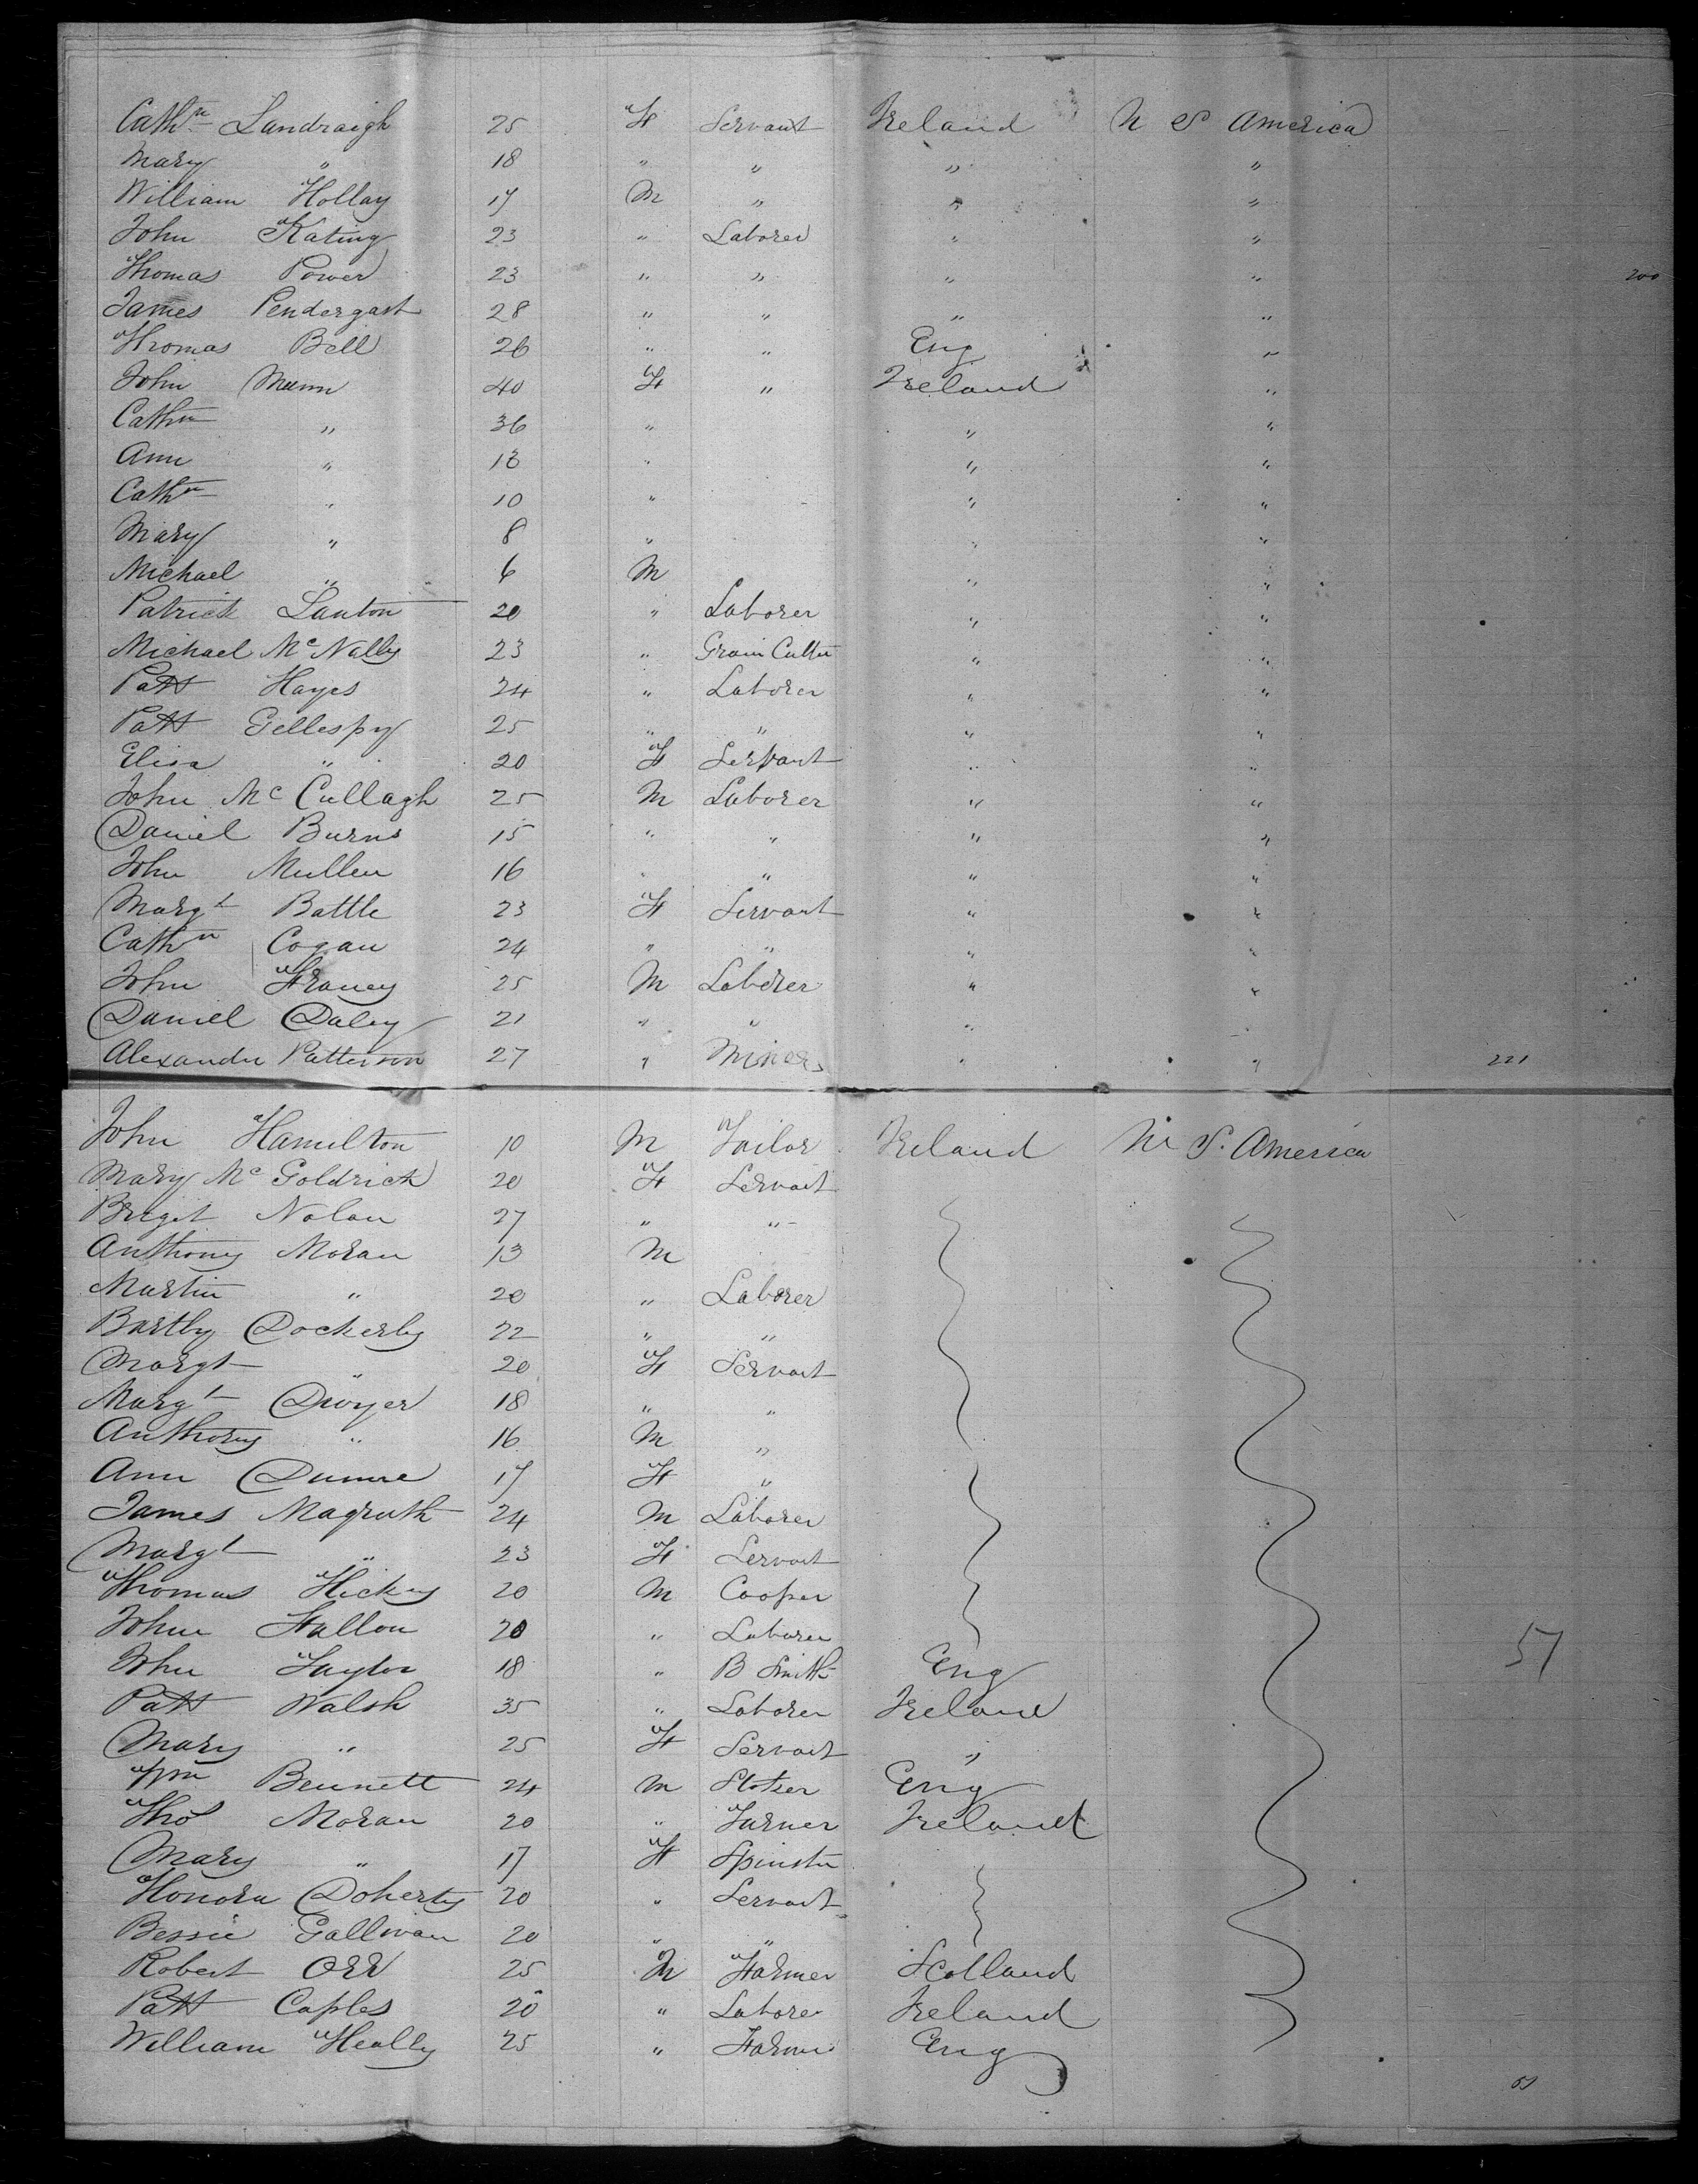 Cathn Landraigh 25 F Servant Ireland U S America
Mary " 18 " " " "
William Hollay 17 M " " "
John Kating 23 " Laborer " "
Thomas Power 23 " " " " 200
James Pendergast 28 " " " "
Thomas Bell 26 " " Eng "
John Munn 40 F " Ireland "
Cathn " 36 " " "
Ann " 13 " " "
Cathn " 10 " " "
Mary " 8 " " "
Michael " 6 M " "
Patrick Lanton 20 " Laborer " "
Michael Mc Nally 23 " Grain Cutter " "
Patt Hayes 24 " Laborer " "
Patt Gellespy 25 " " " "
Elisa " 20 F Servant " "
John Mc Cullagh 25 M Laborer " "
Daniel Burns 15 " " " "
John Mullen 16 " " " "
Margt Battle 23 F Servant " "
Cathn Cogan 24 " " " "
John Franey 25 M Laborer " "
Daniel Daley 21 " " " "
Alexander Patterson 27 " Miners " " 221
John Hamilton 10 M Tailor Ireland U S. America
Mary Mc Goldrick 20 F Servant
Briget Nolan 27 " "
Anthony Moran 13 M
Martin " 20 " Laborer
Bartly Dockerly 22 " "
Margt " 20 F Servant
Margt Dwyer 18 " "
Anthony " 16 M "
Ann 17 F "
James Magrath 24 M Laborer
Margt " 23 F Servant
Thomas Hickey 20 M Cooper
John Fallon 20 " Laborer
John Taylor 18 " B Smith Eng 51
Patt Walsh 35 " Laborer Ireland
Mary " 25 F Servant "
Wm Bennett 24 M Eng
Thos Moran 20 " Farmer Ireland
Mary " 17 F Spinster
Honora Doherty 20 " Servant
Bessie Gallivan 20 " "
Robert Orr 25 M Farmer Scotland
Patt Caples 20 " Laborer Ireland
William Heally 25 " Farmer Eng
51